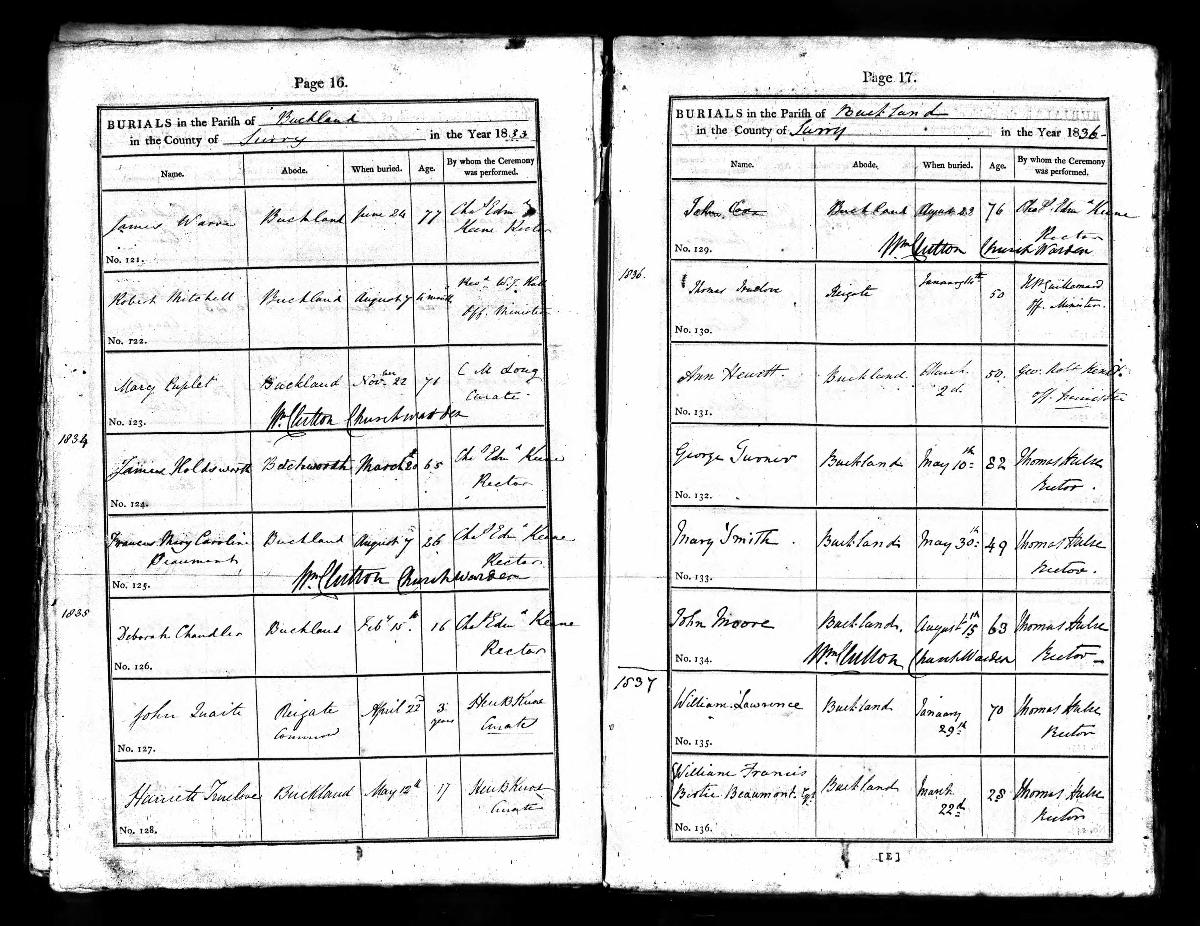 Page 16.
BURIALS in the Parish of Buckland
in the County of Surry in the Year 1833
Name. Abode. When buried. Age. By whom the Ceremony was performed.
James Buckland June 24 77 Chas Edmd Keene Rector
No. 121.
Robert Mitchell Buckland August 7
Off. Minister
No. 122.
Mary Buckland Novber 22 C M Long
Curate.
No. 123. Wm Clutton Churchwarden
1834
James Holdsworth Betchworth March 20th 65 Chas Edmd Keene
Rector
No. 124.
Frances Mary Carolin Buckland August 7 26 Chas Edmd Keene
Beaumont Rector.
No. 125. Wm Clutton Church Warden
1835
Deborah Chandler Buckland Feby 15th. 16 Chas Edmd Keene
Rector
No. 126.
John Reigate April 22d 3 Hen B Knox
Common years Curate
No. 127.
Harriett Truelove Buckland May 12th 17 Hen B Knox
Curate
No. 128.
Page 17.
BURIALS in the Parish of Buckland
in the County of Surry in the Year 1836
Name. Abode. When buried. Age. By whom the Ceremony was performed.
John Cox Buckland August 23 76 Chas. Edmd Keene
Rector
No. 129. Wm Clutton Church Warden
1836
Thomas Truelove Reigate 50
off. Minister.
No. 130.
Ann Hewett Buckland March 50.
2d.
off.
No. 131.
George Turner Buckland May 10th 82 Thomas Hulse
Rector.
No. 132.
Mary Smith. Buckland May 30th 49 Thomas Hulse
Rector.
No. 133.
John Moore Buckland. August 15th 63 Thomas Hulse
No. 134. Wm Clutton Church Warden Rector
1837
William Lawrence Buckland January 70 Thomas Hulse
29th Rector
No. 135.
William Francis Buckland March 28 Thomas Hulse
Beaumont. Esq 22d Rector
No. 136.
[E]